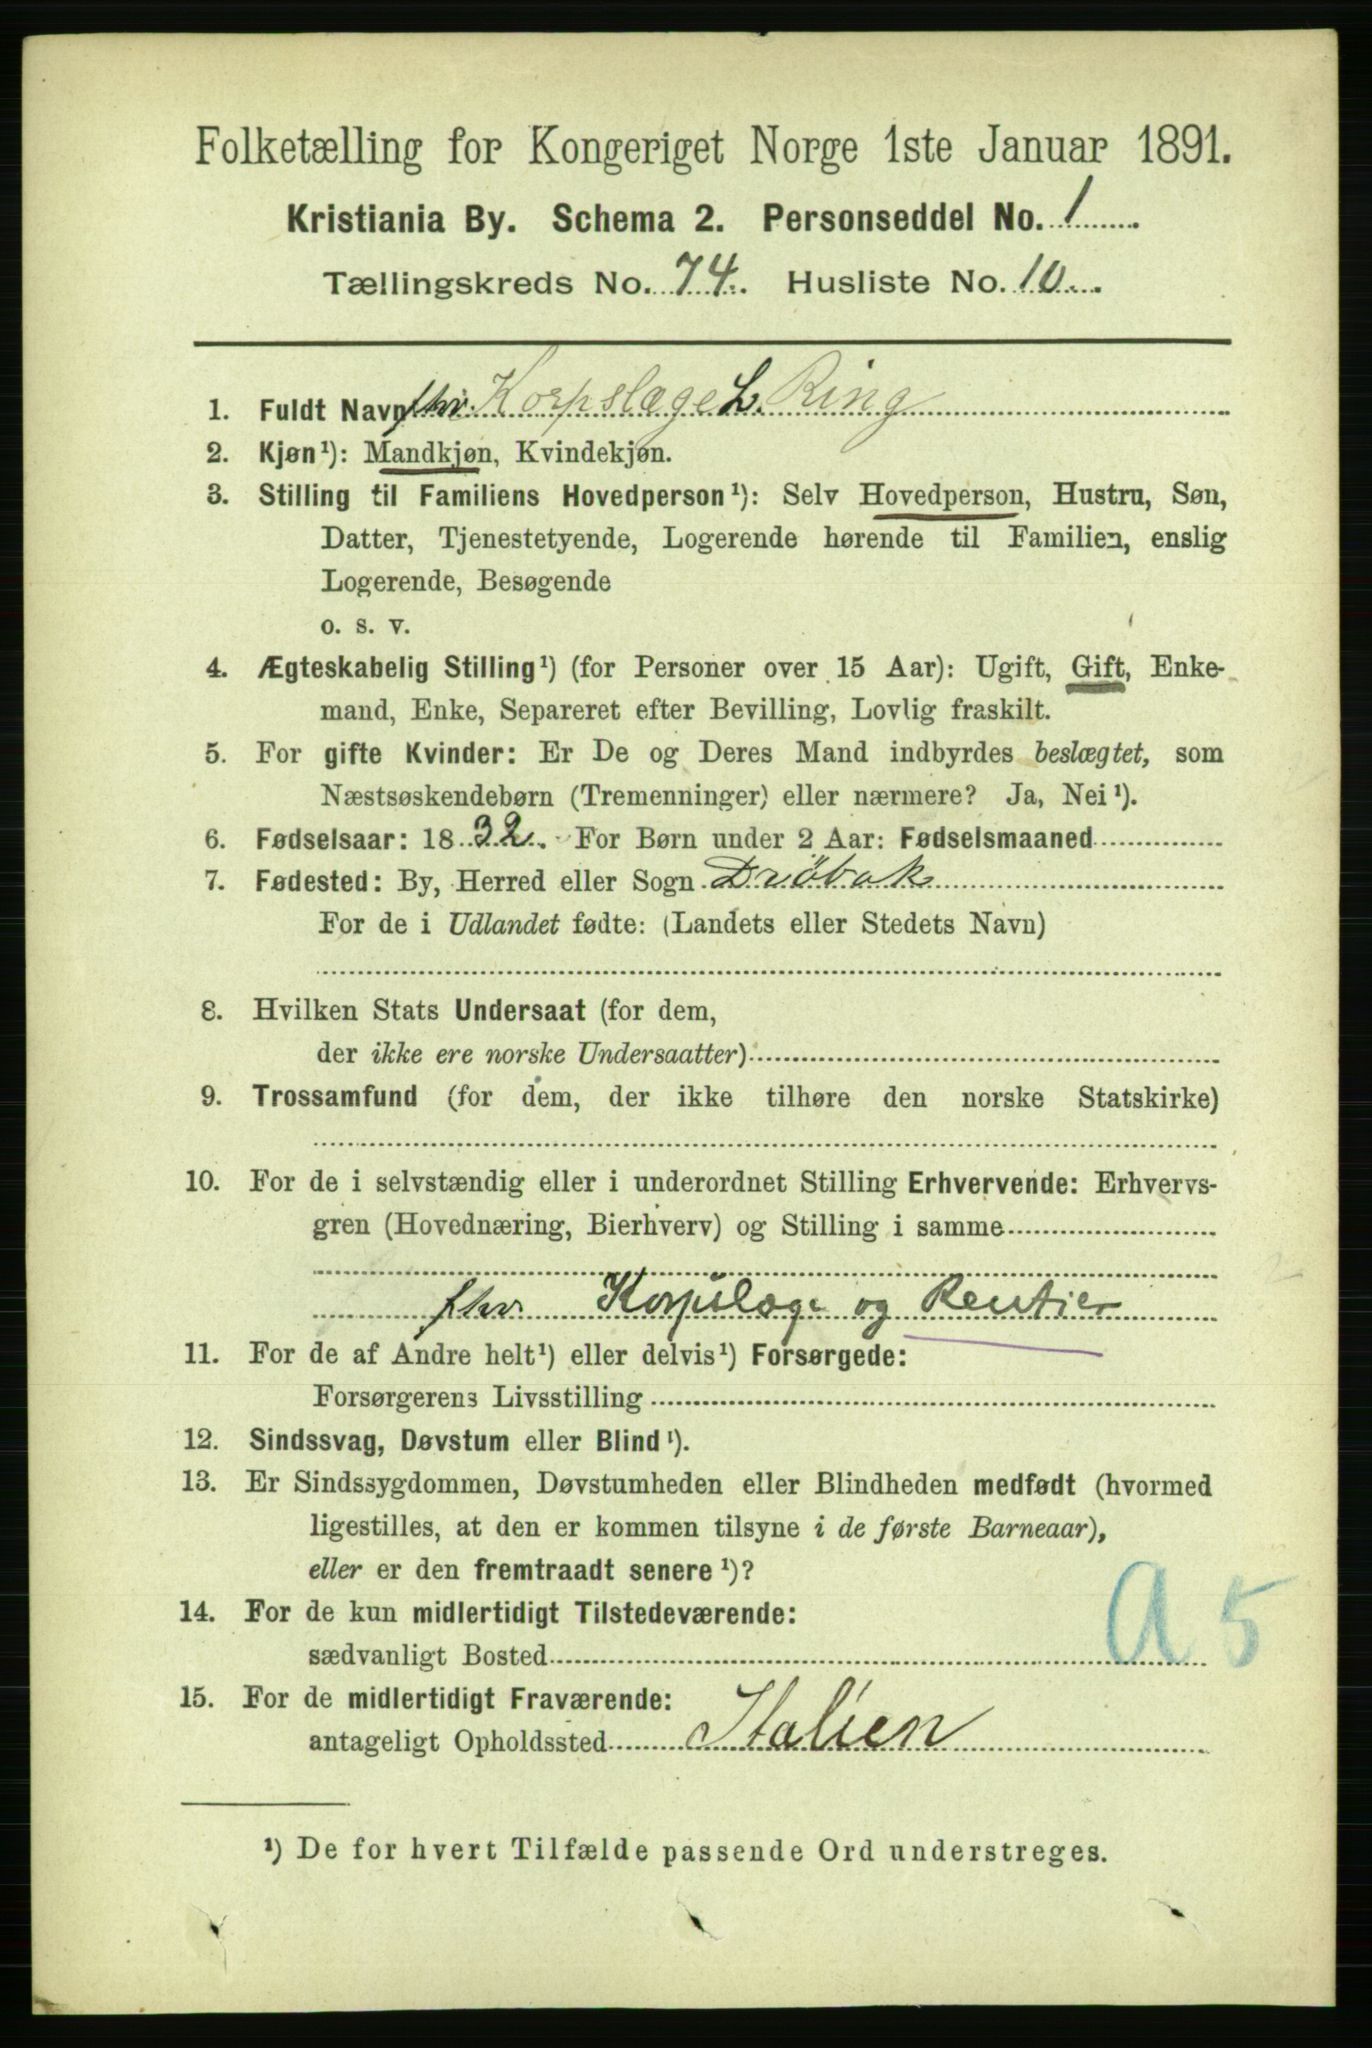 Folketælling for Kongeriget Norge 1ste Januar 1891.
Kristiania By. Schema 2. Personseddel No. 1
Tællingskreds No. 74. Husliste No. 10.
1. Fuldt Navn fhv. Korpslæge L. Ring
2. Kjøn¹): Mandkjøn, Kvindekjøn.
3. Stilling til Familiens Hovedperson¹): Selv Hovedperson, Hustru, Søn,
Datter, Tjenestetyende, Logerende hørende til Familien, enslig
Logerende, Besøgende
o. s. v.
4. Ægteskabelig Stilling¹) (for Personer over 15 Aar): Ugift, Gift, Enke-
mand, Enke, Separeret efter Bevilling, Lovlig fraskilt.
5. For gifte Kvinder: Er De og Deres Mand indbyrdes beslægtet, som
Næstsøskendebørn (Tremenninger) eller nærmere? Ja, Nei¹).
6. Fødselsaar: 1832. For Børn under 2 Aar: Fødselsmaaned
7. Fødested: By, Herred eller Sogn Dröbak
For de i Udlandet fødte: (Landets eller Stedets Navn)
8. Hvilken Stats Undersaat (for dem,
der ikke ere norske Undersaatter)
9. Trossamfund (for dem, der ikke tilhøre den norske Statskirke)
10. For de i selvstændig eller i underordnet Stilling Erhvervende: Erhvervs-
gren (Hovednæring, Bierhverv) og Stilling i samme
fhv Korpslæge og Rentier
11. For de af Andre helt¹) eller delvis¹) Forsørgede:
Forsørgerens Livsstilling
12. Sindssvag, Døvstum eller Blind¹).
13. Er Sindssygdommen, Døvstumheden eller Blindheden medfødt (hvormed
ligestilles, at den er kommen tilsyne i de første Barneaar),
eller er den fremtraadt senere¹)?
14. For de kun midlertidigt Tilstedeværende:
sædvanligt Bosted
A 5
15. For de midlertidigt Fraværende:
antageligt Opholdssted Italien
¹) De for hvert Tilfælde passende Ord understreges.